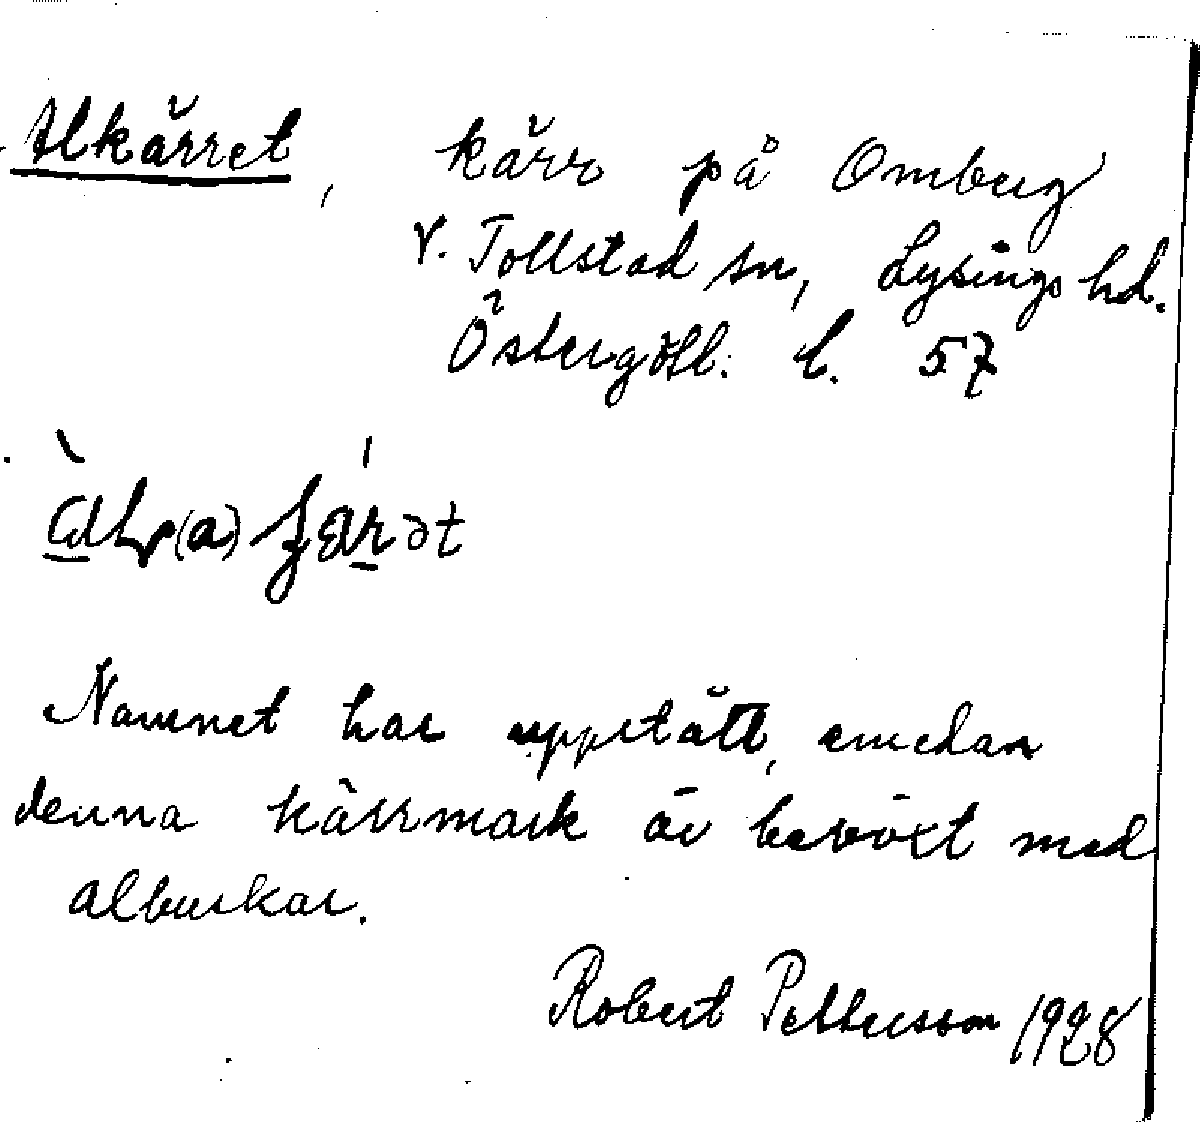 Alkärret, kärr på Omberg
V. Tollstad sn, Lysings hd.
Östergötl. l. 57
Namnet har uppstått, emedan
denna kärrmark är bevöxt med
albuskar.
Robert Pettersson 1928